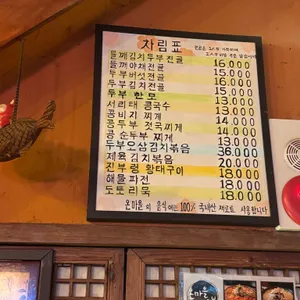 차림표
들깨김치두부전골 16.000
들깨야채전골 15.000
두부버섯전골 16.000
두부김치전골 15.000
두부 한모 13.000
서리태 콩국수 13.000
콩비지 찌개 13.000
콩두부 젓국찌개 14.000
콩 순두부 찌개 13.000
두부오삼김치볶음 36.000
제육 김치볶음 20.000
진부령 황태구이 18.000
해물 파전 18.000
도토리묵 18.000
온마을 의 음식에는 100% 국내산 재료로 사용합니다